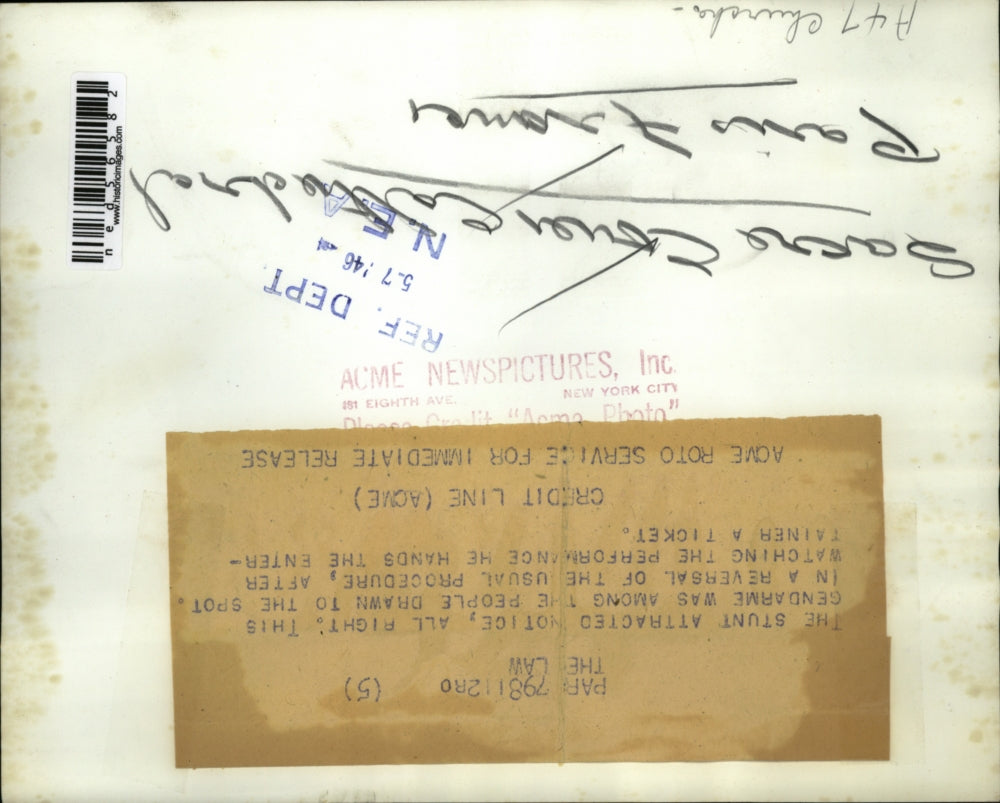 PAR 798112RO (5)
THE LAW
THE STUNT ATTRACTED NOTICE, ALL RIGHT. THIS
GENDARME WAS AMONG THE PEOPLE DRAWN TO THE SPOT.
IN A REVERSAL OF THE USUAL PROCEDURE, AFTER
WATCHING THE PERFORMANCE HE HANDS THE ENTER-
TAINER A TICKET.
CREDIT LINE (ACME)
ACME ROTO SERVICE FOR IMMEDIATE RELEASE
ACME NEWSPICTURES, Inc.
461 EIGHTH AVE. NEW YORK CITY
Please Credit "Acme Photo"
REF. DEPT.
5.7 '46
N.E.A
Sacre Coeur Cathedral
Paris France
A47 Churchs-
ned56582
www.historicimages.com